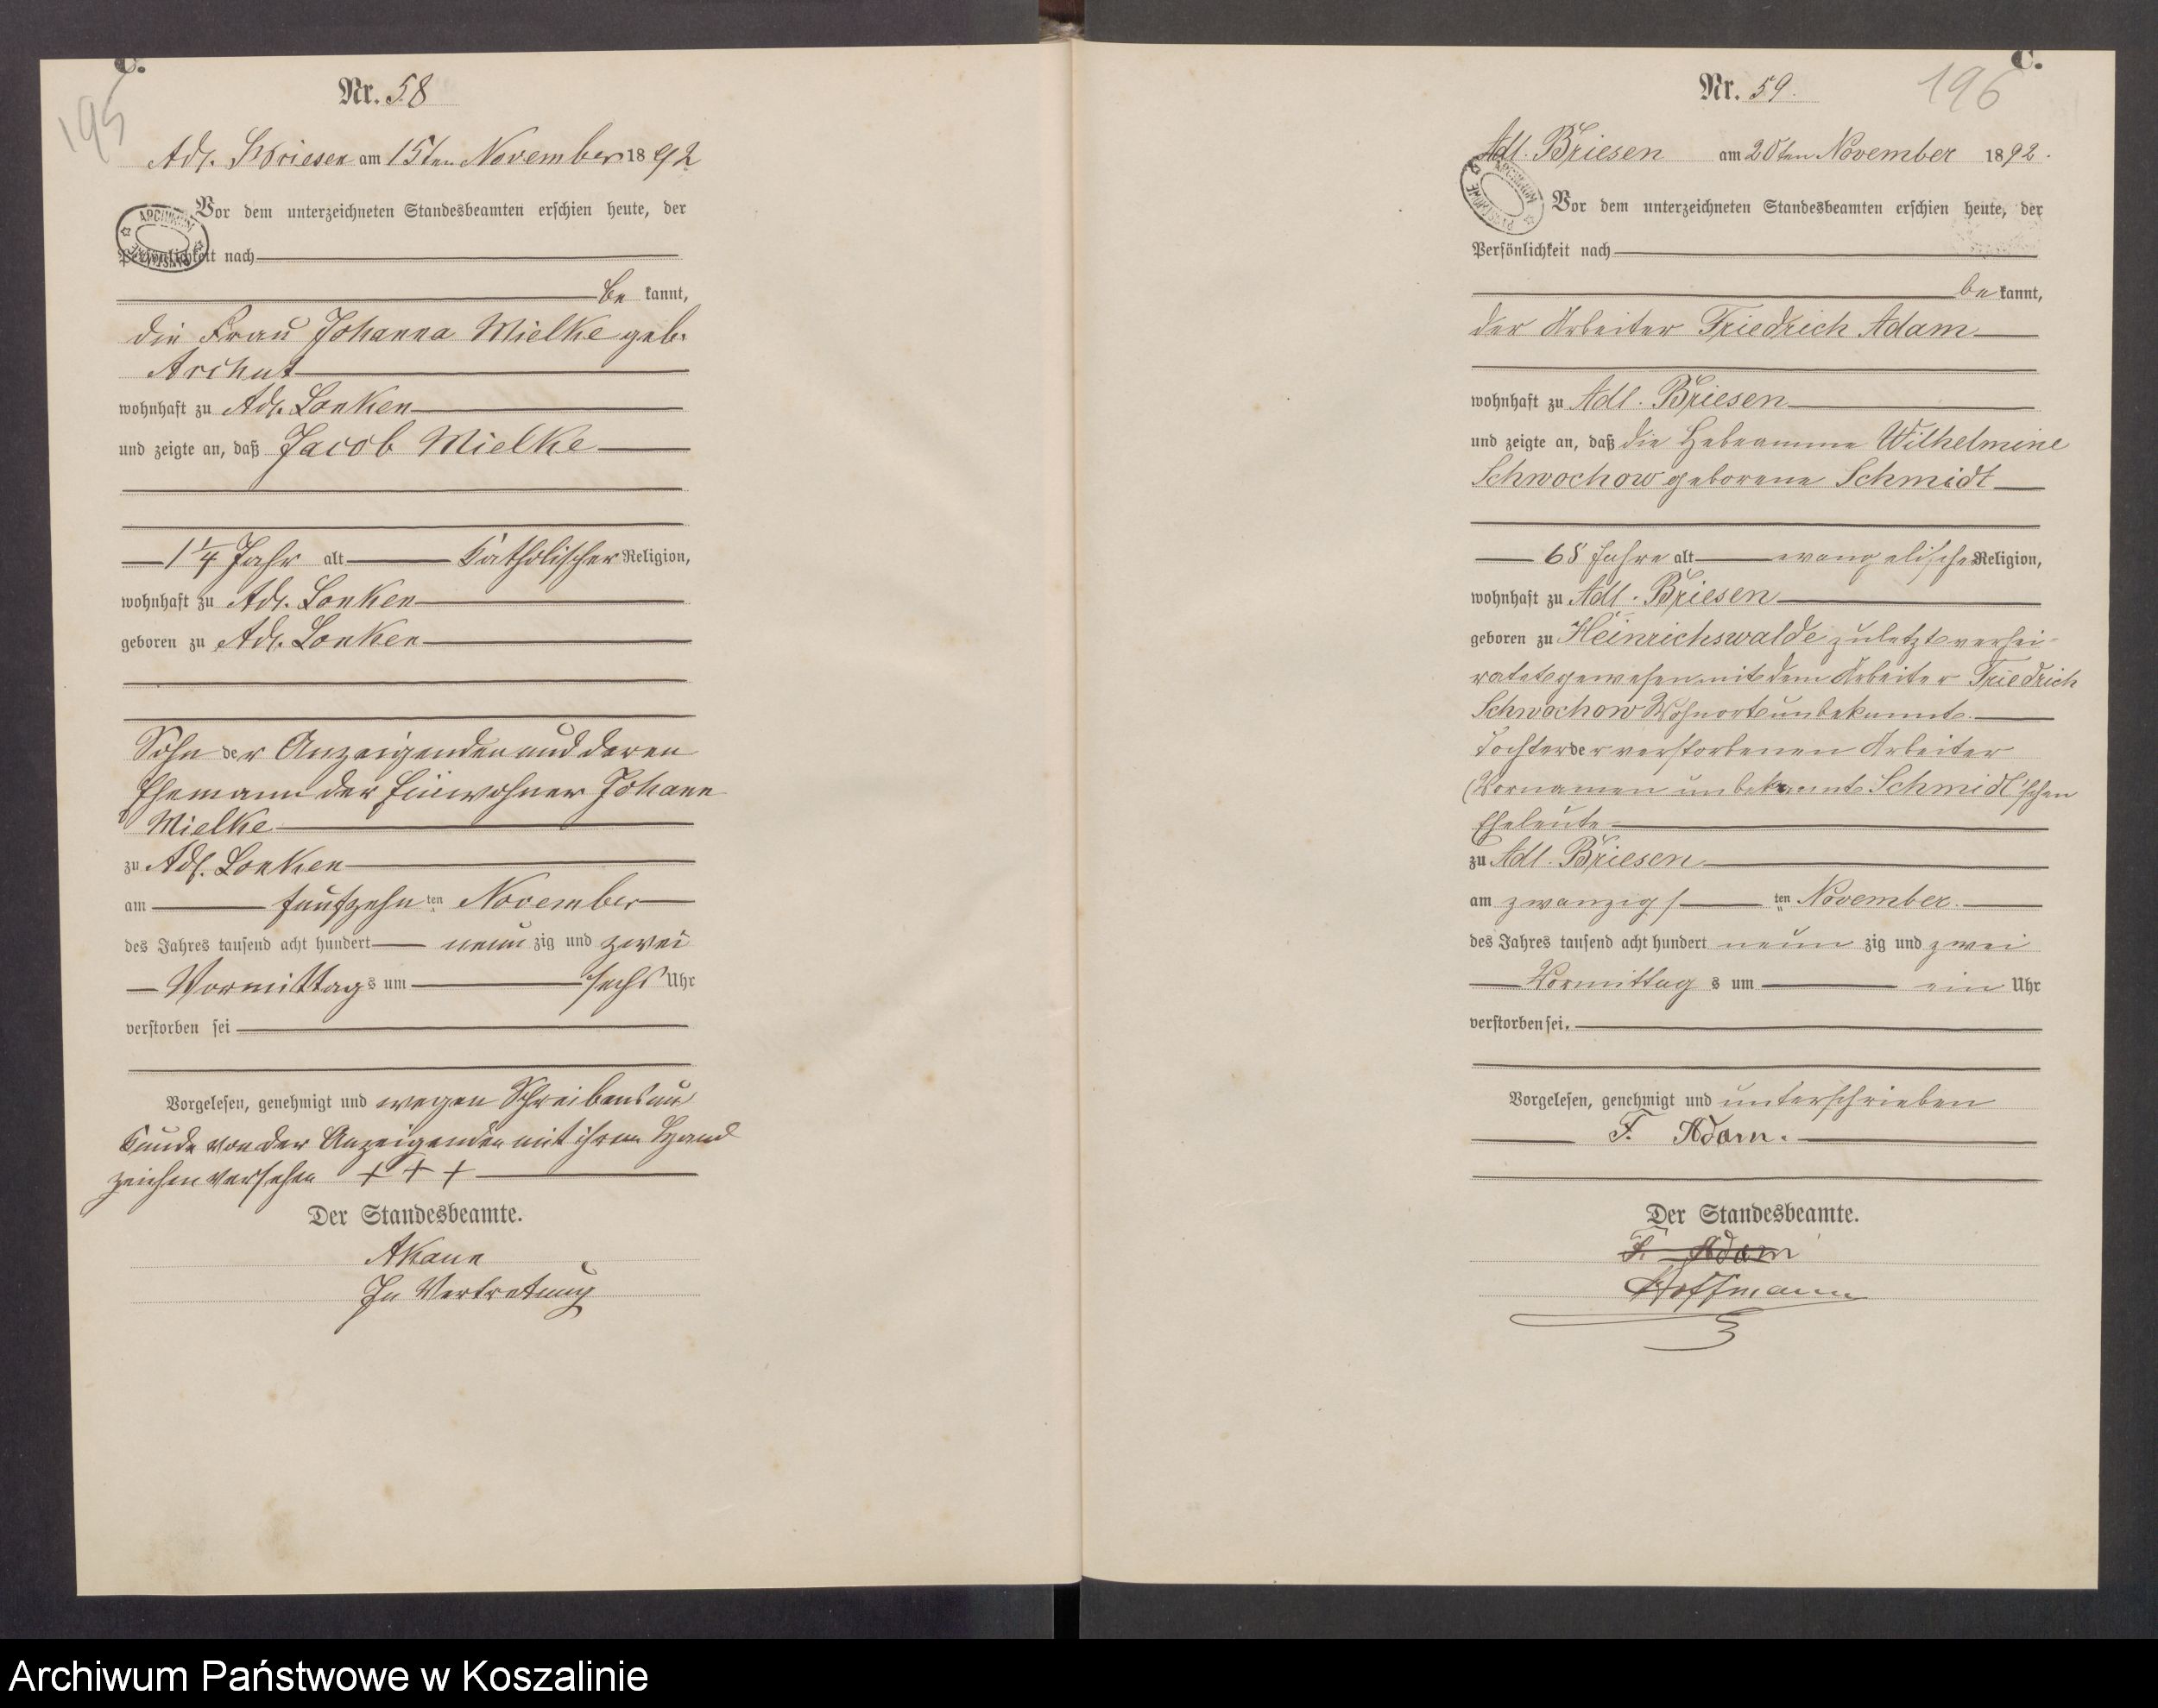 C.
195
Nr. 58
Adl. Briesen am 15ten November 1892
Vor dem unterzeichneten Standesbeamten erschien heute, der
Persönlichkeit nach
be kannt,
die Frau Johanna Mielke geb.
Archut
wohnhaft zu Adl. Lonken
und zeigte an, daß Jacob Mielke
1 1/4 Jahr alt katholischer Religion,
wohnhaft zu Adl. Lonken
geboren zu Adl. Lonken
Sohn der Anzeigenden und deren
Ehemann der Einwohner Johann
Mielke
zu Adl. Lonken
am fünfzehn ten November
des Jahres tausend acht hundert neun zig und zwei
Vormittag s um sechs Uhr
verstorben sei
Vorgelesen, genehmigt und wegen Schreibensun
kunde von der Anzeigenden mit ihrem Hand
zeichen versehen + + +
Der Standesbeamte.
In Vertretung
ARCHIWUM PAŃSTWOWE
C.
196
Nr. 59.
Adl. Briesen am 20ten November 1892.
Vor dem unterzeichneten Standesbeamten erschien heute, der
Persönlichkeit nach
be kannt,
der Arbeiter Friedrich Adam
wohnhaft zu Adl. Briesen
und zeigte an, daß die Hebeamme Wilhelmine
Schwochow geborene Schmidt
68 Jahre alt evangelischer Religion,
wohnhaft zu Adl. Briesen
geboren zu Heinrichswalde zuletzt verhei-
ratet gewesen mit dem Arbeiter Friedrich
Schwochow Wohnort unbekannt.
Tochter der verstorbenen Arbeiter
(Vornamen unbekannt Schmidt'schen
Eheleute
zu Adl. Briesen
am zwanzigs ten November.
des Jahres tausend acht hundert neun zig und zwei
Vormittag s um ein Uhr
verstorben sei.
Vorgelesen, genehmigt und unterschrieben
F. Adam.
Der Standesbeamte.
F. Adam
Hoffmann
ARCHIWUM PAŃSTWOWE
Archiwum Państwowe w Koszalinie